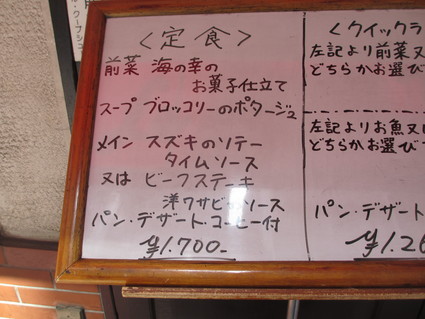 ＜定食＞
前菜 海の幸の
お菓子仕立て
スープ ブロッコリーのポタージュ
メイン スズキのソテー
タイムソース
又は ビーフステーキ
洋ワサビソース
パン・デザート・コーヒー付
¥1.700-
＜クイックラ
左記より前菜又
どちらかお選び
左記よりお魚又
どちらかお選び
パン・デザート
¥1.2